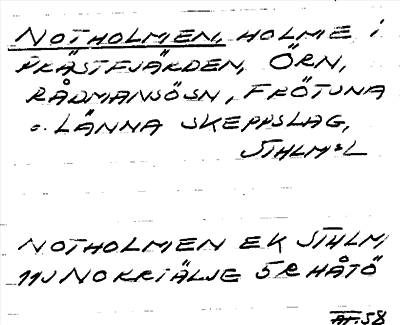 NOTHOLMEN, HOLME i
PRÄSTFJÄRDEN, ÖRN,
RÅDMANSÖSN, FRÖTUNA
o. LÄNNA SKEPPSLAG,
STHLMSL
NOTHOLMEN EK STHLM
11J NORRTÄLJE 5R HÅTÖ
AF.58